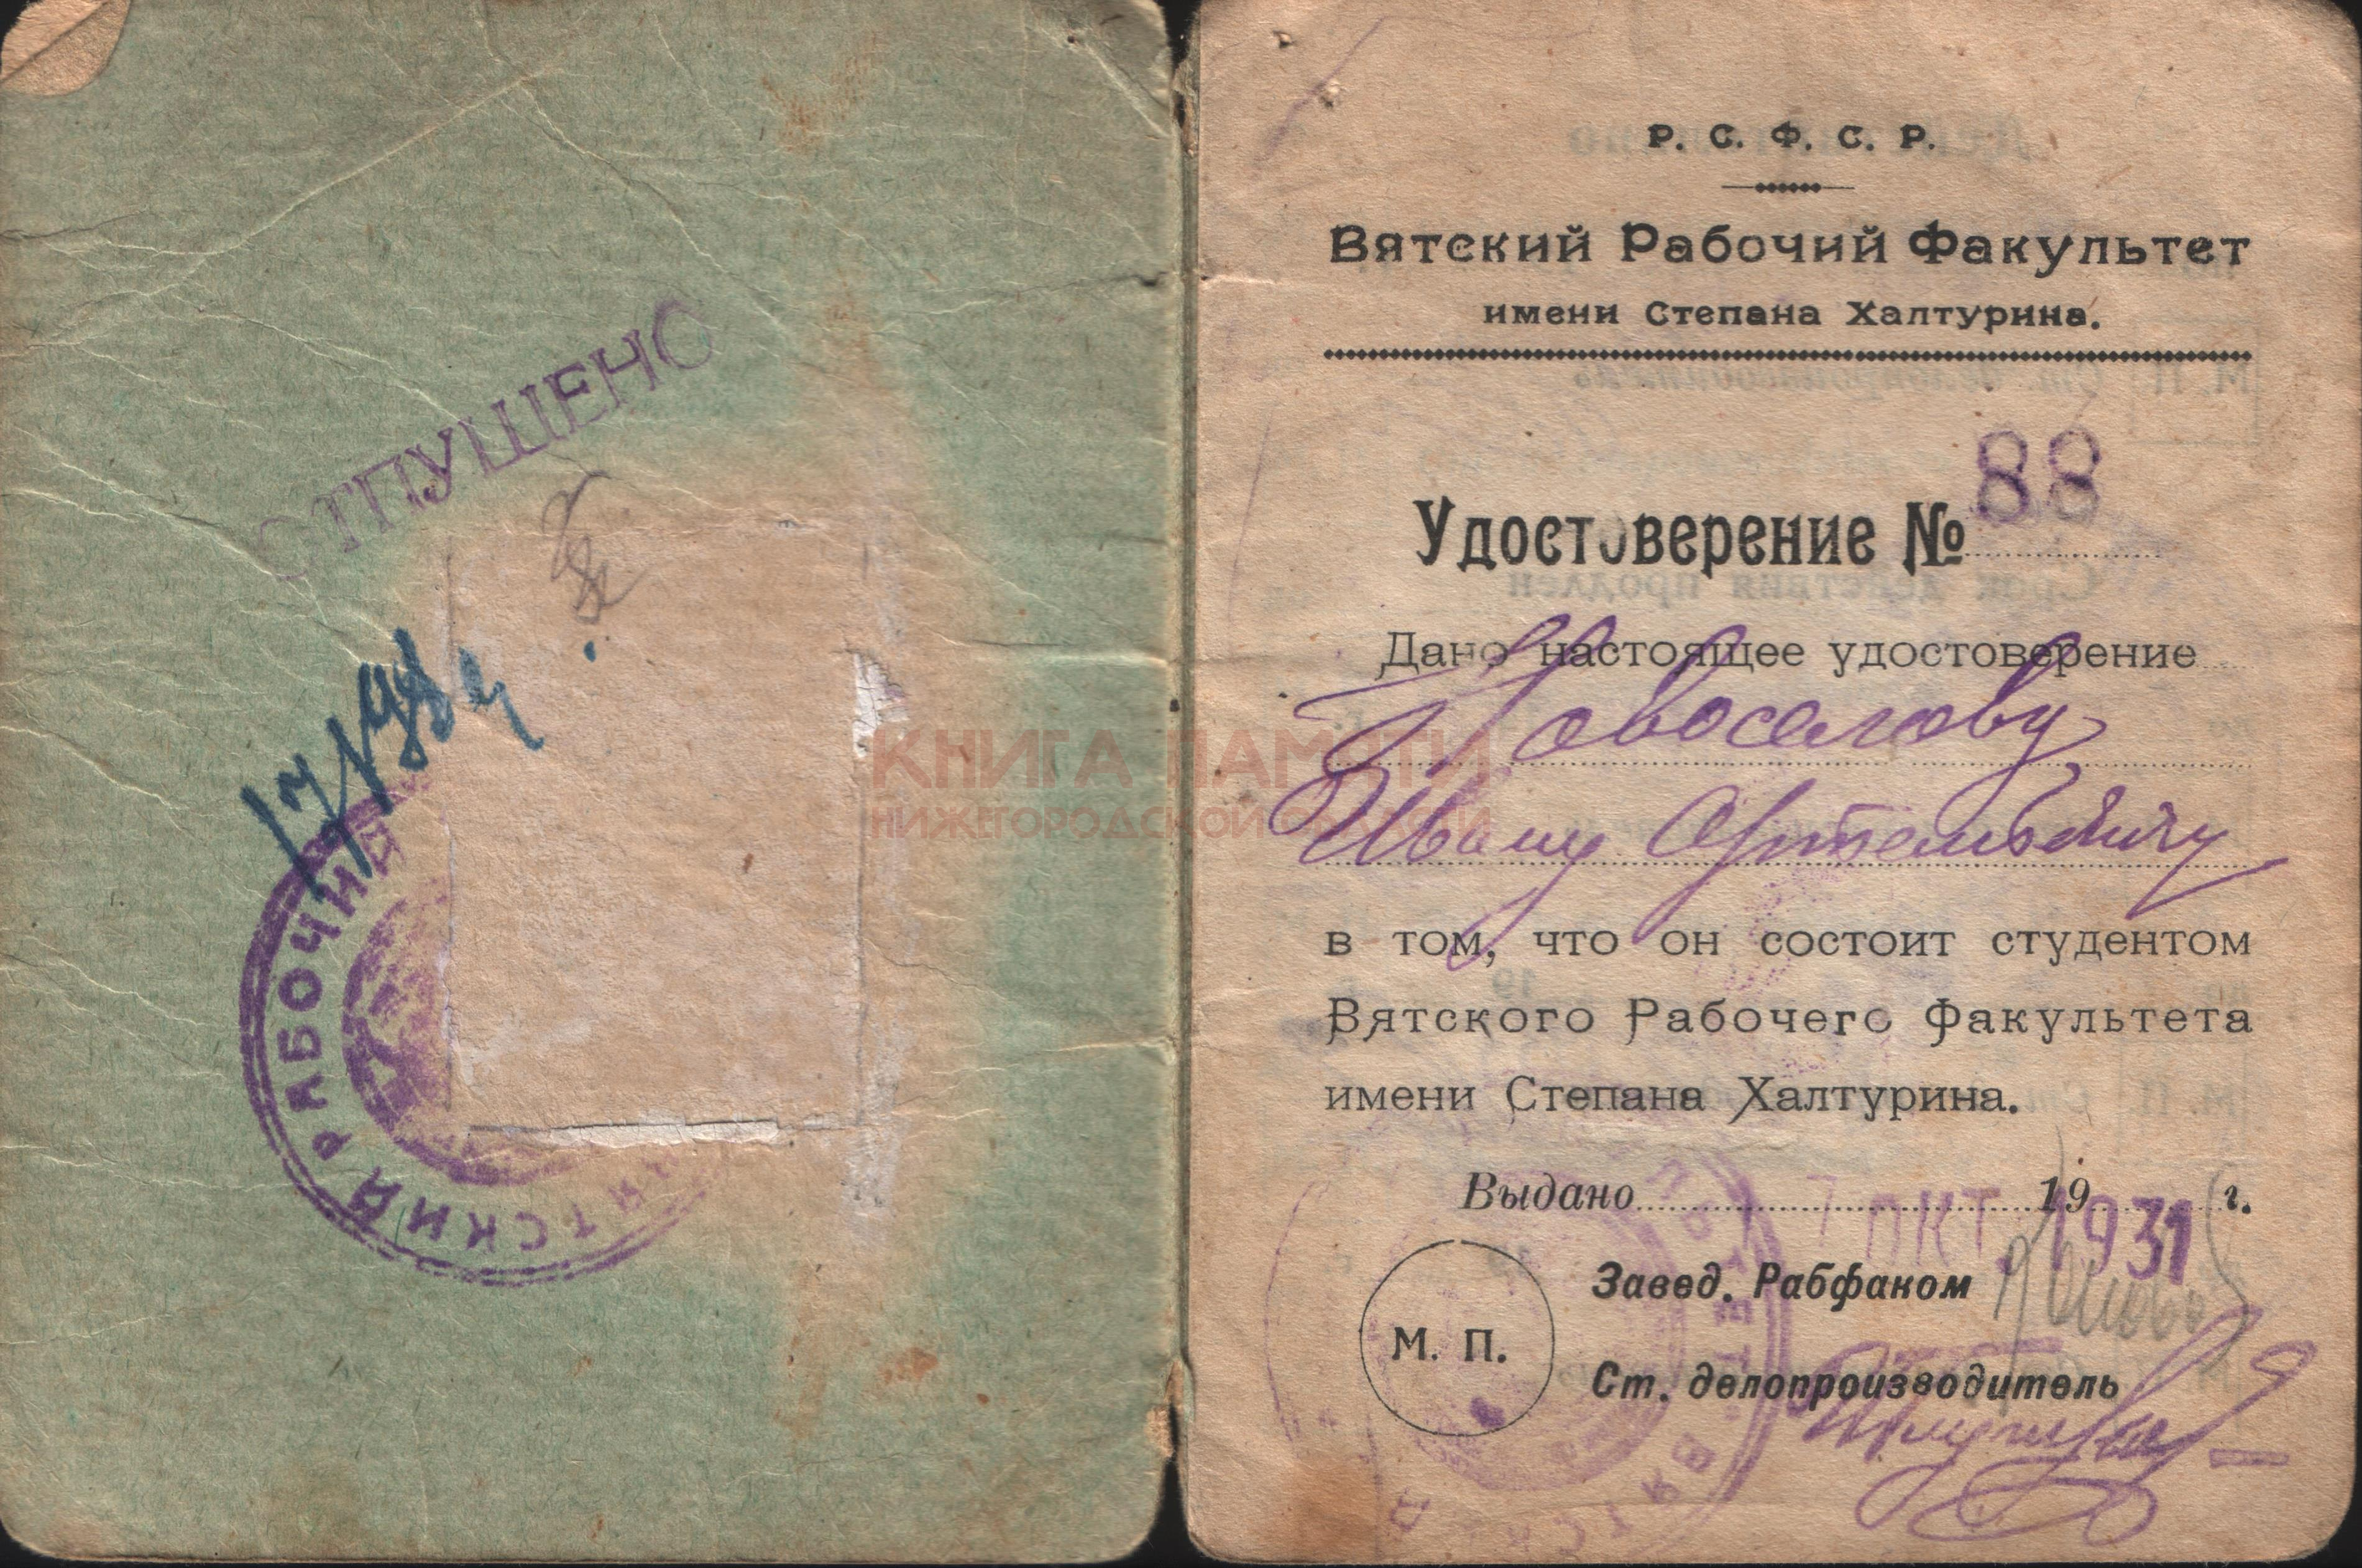 ОТПУЩЕНО
РАБОЧИЙ
ВЯТСКИЙ
КНИГА ПАМЯТИ
НИЖЕГОРОДСКОЙ ОБЛАСТИ
Р. С. Ф. С. Р.
Вятский Рабочий Факультет
имени Степана Халтурина.
Удостоверение № 88
Дано настоящее удостоверение
Новоселову
Ивану Артемьевичу
в том, что он состоит студентом
Вятского Рабочего Факультета
имени Степана Халтурина.
Выдано 19 г.
7 ОКТ. 1931
Завед. Рабфаком
М. П.
Ст. делопроизводитель